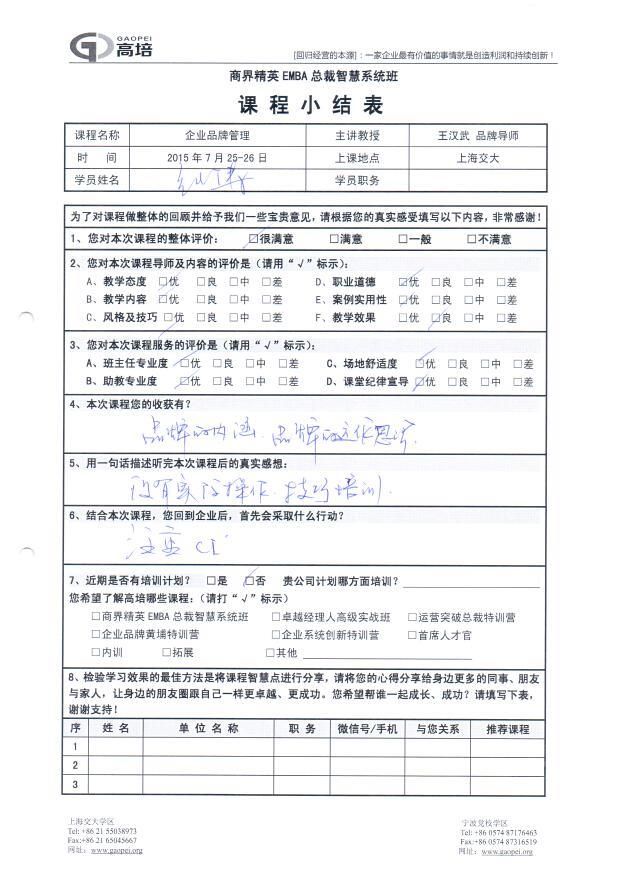 GAOPEI
高培
[回归经营的本源]：一家企业最有价值的事情就是创造利润和持续创新！
商界精英 EMBA 总裁智慧系统班
课 程 小 结 表
课程名称 企业品牌管理 主讲教授 王汉武 品牌导师
时 间 2015 年 7 月 25-26 日 上课地点 上海交大
学员姓名 学员职务
为了对课程做整体的回顾并给予我们一些宝贵意见，请根据您的真实感受填写以下内容，非常感谢！
1、您对本次课程的整体评价： □很满意 □满意 □一般 □不满意
2、您对本次课程导师及内容的评价是（请用“√”标示）：
A、教学态度 □优 □良 □中 □差 D、职业道德 □优 □良 □中 □差
B、教学内容 □优 □良 □中 □差 E、案例实用性 □优 □良 □中 □差
C、风格及技巧 □优 □良 □中 □差 F、教学效果 □优 □良 □中 □差
3、您对本次课程服务的评价是（请用“√”标示）：
A、班主任专业度 □优 □良 □中 □差 C、场地舒适度 □优 □良 □中 □差
B、助教专业度 □优 □良 □中 □差 D、课堂纪律宣导 □优 □良 □中 □差
4、本次课程您的收获有？
品牌的内涵、品牌的运作思路.
5、用一句话描述听完本次课程后的真实感想：
没有实际操作、技巧培训.
6、结合本次课程，您回到企业后，首先会采取什么行动？
注重 CI
7、近期是否有培训计划？ □是 □否 贵公司计划哪方面培训？
您希望了解高培哪些课程：（请打“√”标示）
□商界精英 EMBA 总裁智慧系统班 □卓越经理人高级实战班 □运营突破总裁特训营
□企业品牌黄埔特训营 □企业系统创新特训营 □首席人才官
□内训 □拓展 □其他
8、检验学习效果的最佳方法是将课程智慧点进行分享，请将您的心得分享给身边更多的同事、朋友
与家人，让身边的朋友圈跟自己一样更卓越、更成功。您希望帮谁一起成长、成功？请填写下表，
谢谢支持！
序 姓 名 单 位 名 称 职 务 微信号/手机 与您关系 推荐课程
1
2
3
上海交大学区 宁波党校学区
Tel: +86 21 55038973 Tel: +86 0574 87176463
Fax:+86 21 65045667 Fax:+86 0574 87316519
网址: www.gaopei.org 网址: www.gaopei.org